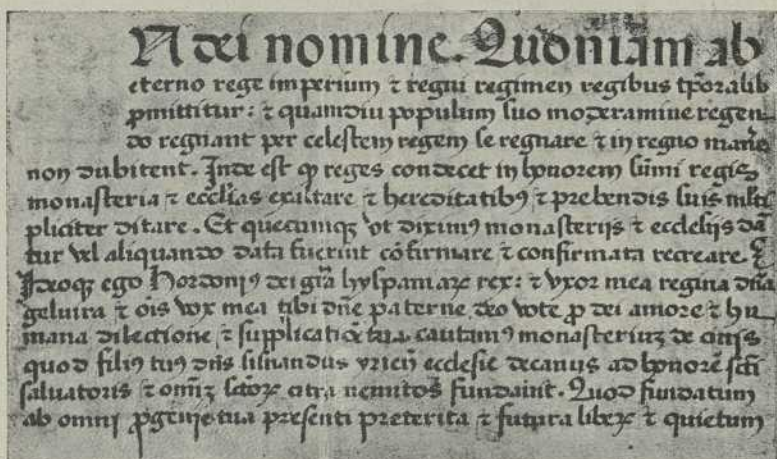 N dei nomine. Quoniam ab
eterno rege imperium ⁊ regni regimen regibus tp̄oralib
ꝓmittitur: ⁊ quamdiu populum suo moderamine regen
do regnant per celestem regem se regnare ⁊ in regno manē
non dubitent. Inde est ꝙ reges condecet in honorem sūmi regis
monasteria ⁊ eccłias exaltare ⁊ hereditatibꝰ ⁊ prebendis suis mlti
pliciter ditare. Et quecumqꝫ vt diximꝰ monasterijs ⁊ ecclesijs dā
tur vel aliquando data fuerint cōfirmare ⁊ confirmata recreare. ⁊
Ideoqꝫ ego Hordoniꝰ dei gr̄a hyspaniaꝝ rex: ⁊ vxor mea regina dn̄a
geluira ⁊ oīs vox mea tibi dn̄e paterne deo vote ꝓ dei amore ⁊ hu
mana dilectione ⁊ supplicatiōe tua cautamꝰ monasteriuꝫ de cinis
quod filiꝰ tuꝰ dn̄s sisnandus yrień ecclesie decanus ad honorē sc̄i
saluatoris ⁊ omīꝫ sc̄toꝝ citra nemitos fundauit. Quod fundatum
ab omni ꝓgenie tua presenti preterita ⁊ futura libeꝝ ⁊ quietum